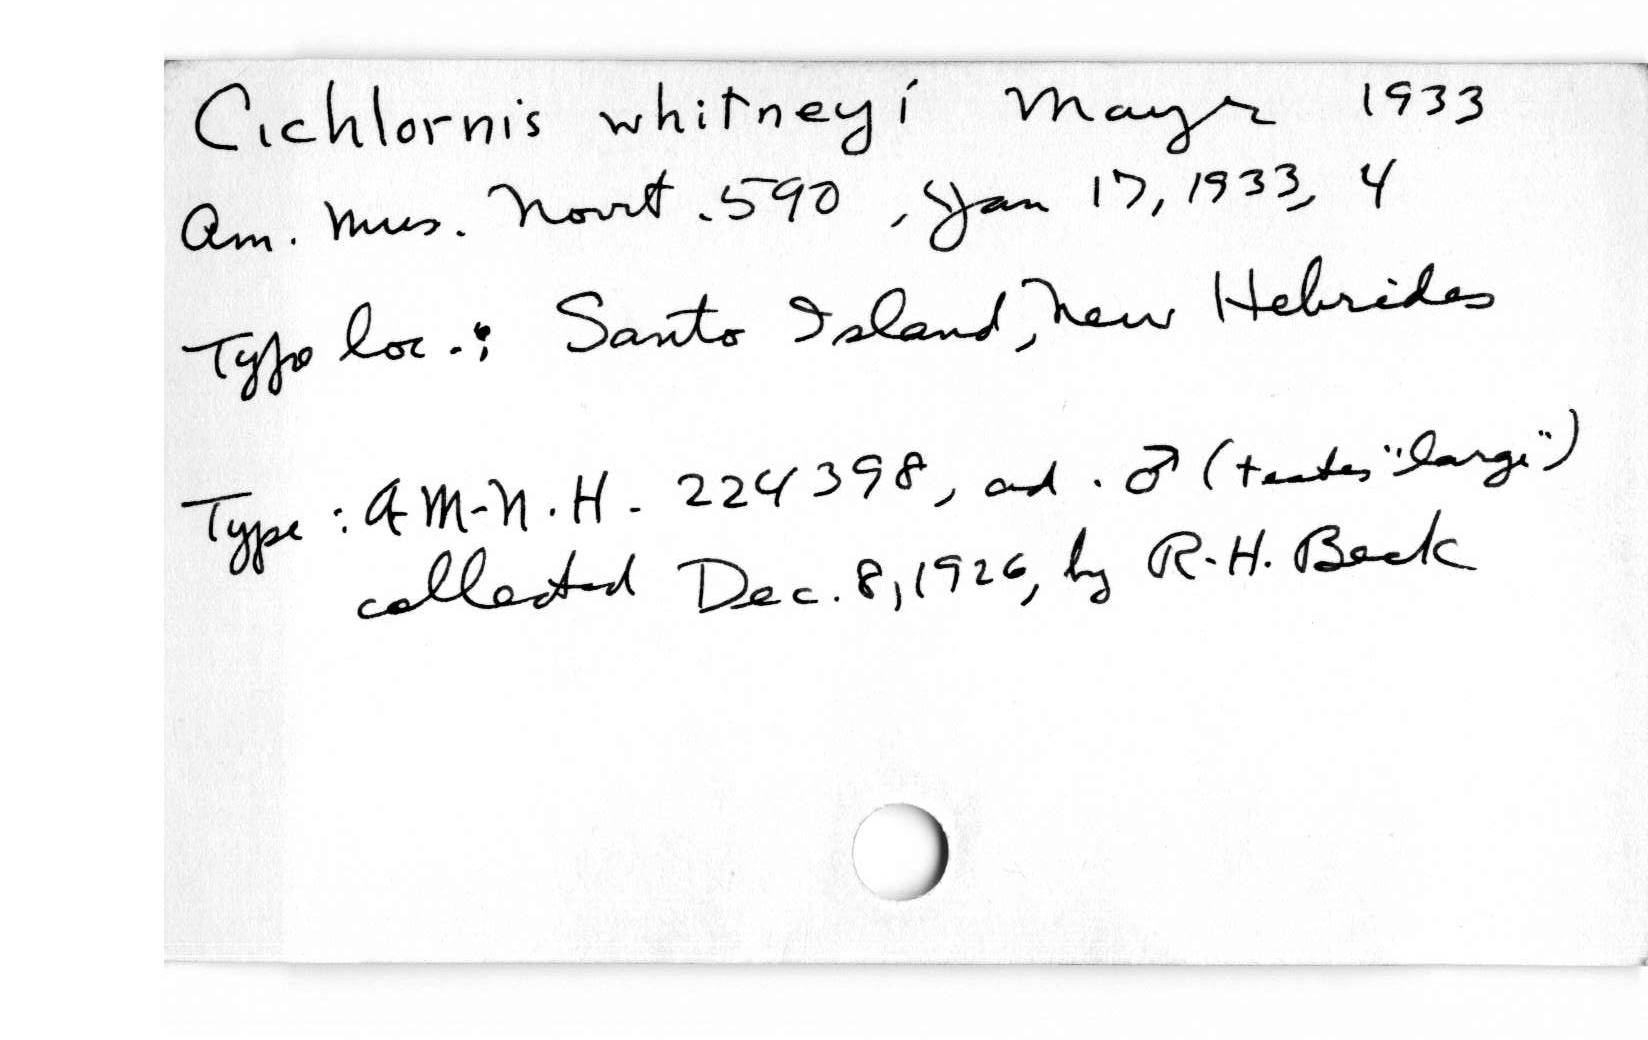 Cichlornis whitneyi Mayr 1933
Am. Mus. Novit. 590, Jan 17, 1933, 4
Type loc.: Santo Island, New Hebrides
Type: A.M.N.H. 224398, ad. ♂ (testes "large")
collected Dec. 8, 1926, by R.H. Beck